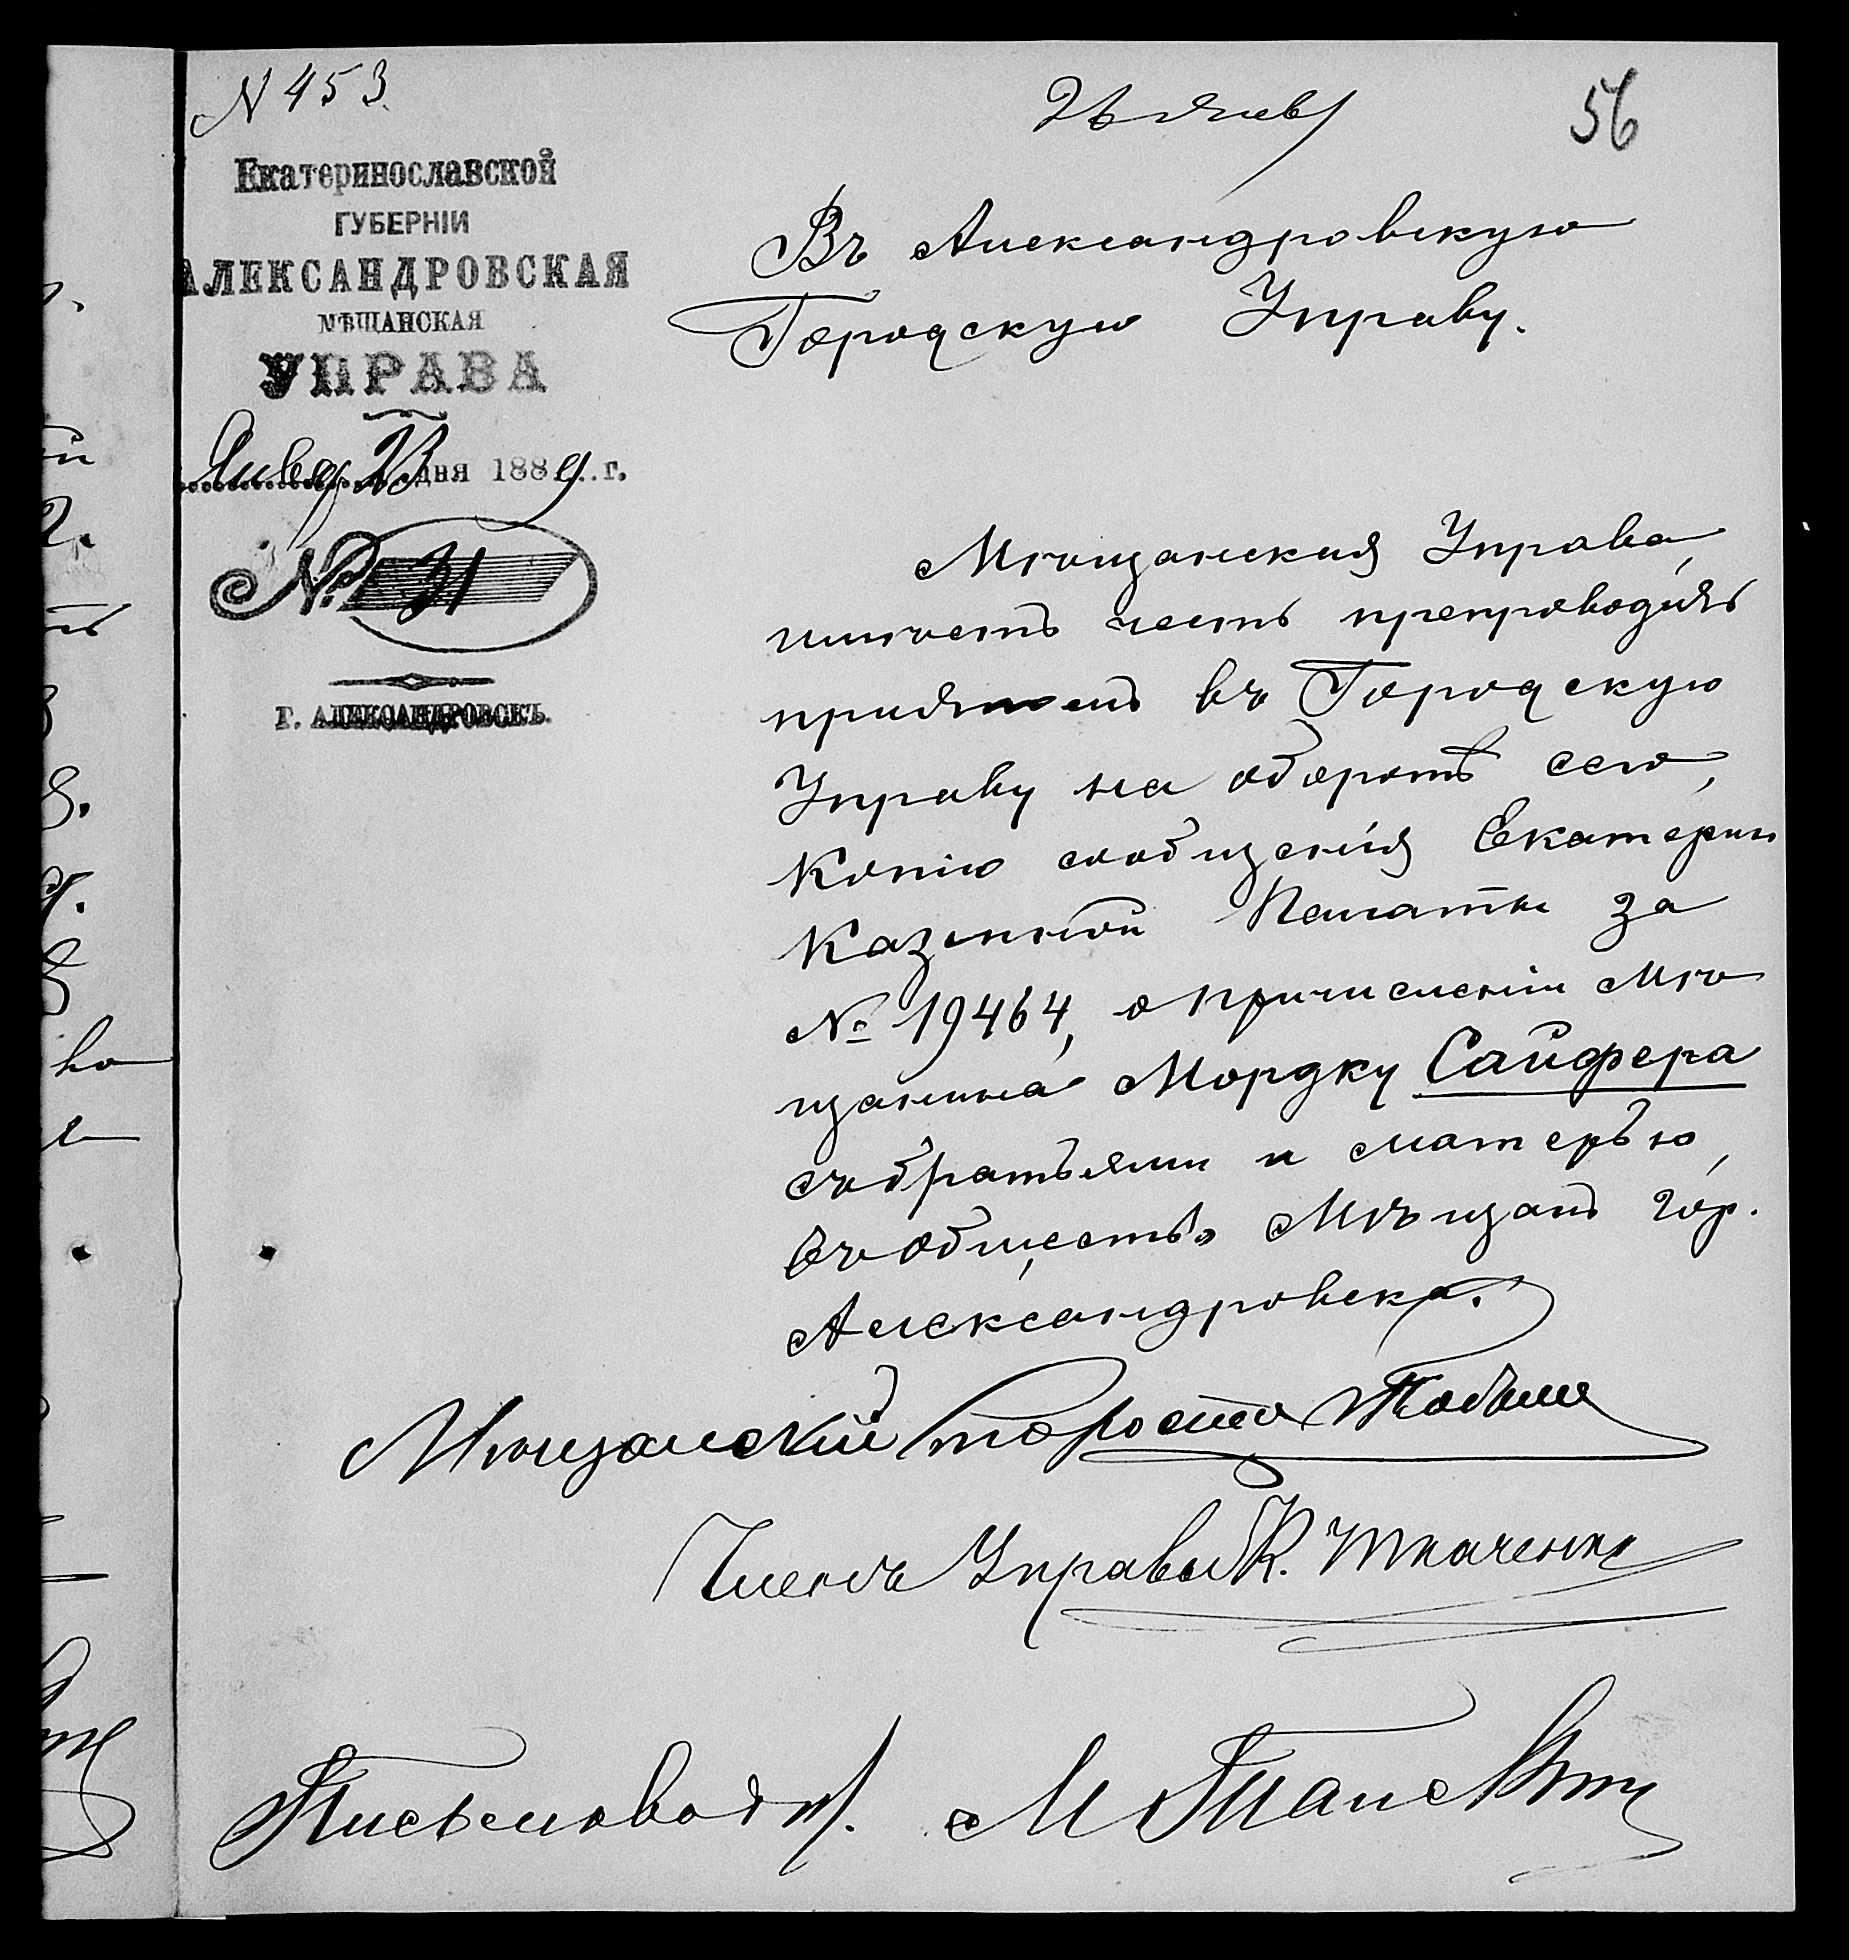 N 453.
26 Янв
56
Екатеринославской
ГУБЕРНІИ
АЛЕКСАНДРОВСКАЯ
МѢЩАНСКАЯ
УПРАВА
Январ 23 дня 1889 г.
№ 31
Г. АЛЕКСАНДРОВСКЪ.
Въ Александровскую
Городскую Управу.
Мѣщанская Управа,
имѣетъ честь препроводить
при семъ въ Городскую
Управу на оборотѣ сего,
копію сообщенія Екатерин
Казенной Палаты за
№ 19464, о причисленіи Мѣ
щанина Мордку Сайфера
съ братьями и матерью,
въ общество Мѣщанъ гор.
Александровска.
Мѣщанскій Староста
Членъ Управы К. Ткаченко
Письмоводит. М